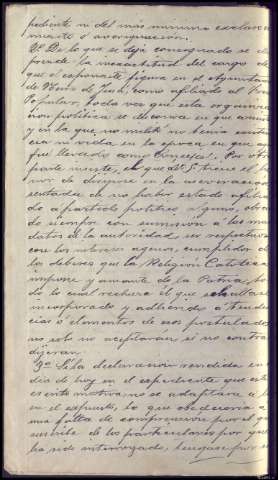 pediente ni del más mínimo esclareci
miento o averiguación.
2º De lo que se deja consignado se des
prende la inexactitud del cargo de
que el exponente figura en el Ayuntamien
de como afiliado al Frente
Popular, toda vez que esta organiza
ción política se desconocía en que
y en la que no militó ni tenía existen
cia ni vida en la época en que
fué llevado como Concejal. Por otra
parte miente, el que a V. S. tiene el ho
nor de dirigirse en la aseveración
sentada de no haber estado afilia
do a partido político alguno, obran
do siempre con sumisión a los man
datos de la autoridad, ser respetuoso
con los intereses agenos, cumplidor de
los deberes que la Religión Católica
impone y amante de la Patria, to
do lo cual rechaza el que se hallara
incorporado y adherido a tenden
cias o elementos de esos postulados
no solo no aceptaran si no contra
dijeran.
3º Si la declaración rendida en
día de hoy en el expediente que este
escrito motiva no se adaptara a lo
en el expuesto, lo que obedecería a
una falta de comprensión por el que
suscribe de los particulares por que
ha sido interrogado, tengase por